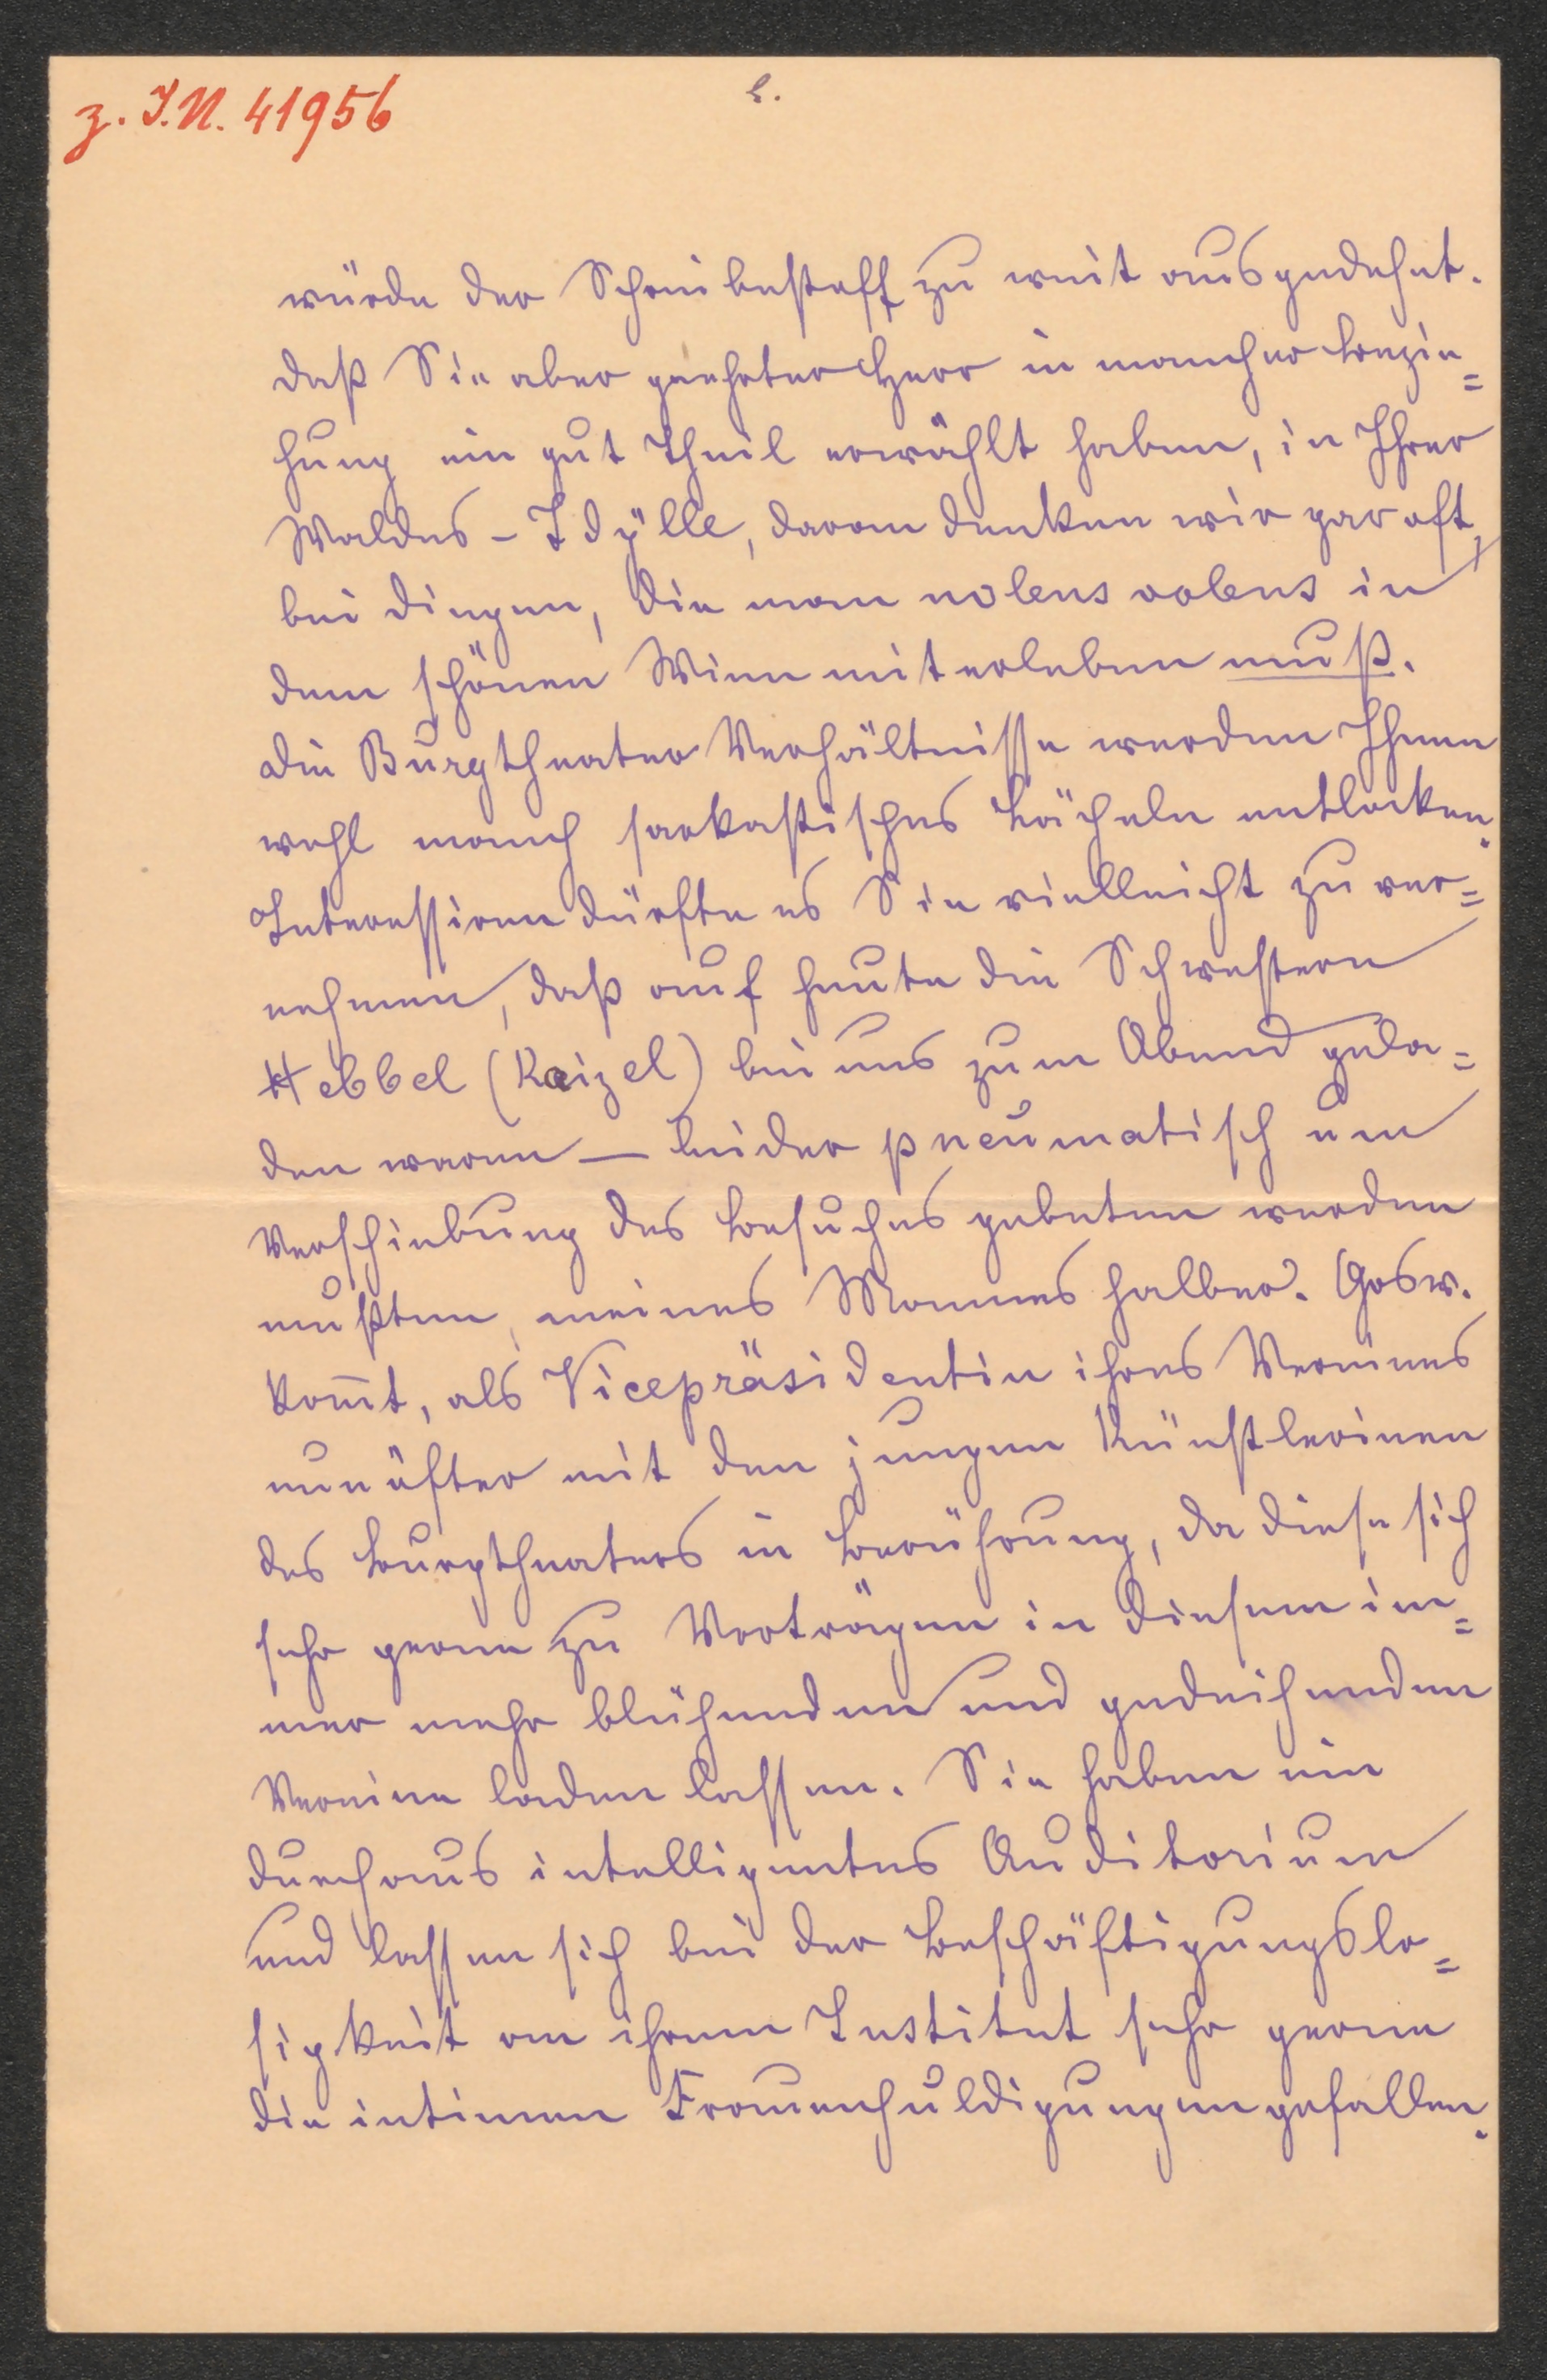 z. I.N. 41956
2.
würde der Schreibestoff zu weit ausgedehnt.
daß Sie aber geehrter Herr in mancher Bezie=
hung ein gut Theil erwählt haben, in Ihrer
Waldes-Idylle, daran denken wir gar oft,
bei Dingen, die man nolens volens in
dem schönen Wien miterleben muß.
Die Burgtheater Verhältnisse werden Ihnen
wohl manch sarkastisches Lächeln entlocken.
Interessiren dürfte es Sie vielleicht zu ver=
nehmen, daß auf heute die Schwestern
Hebbel (Kaizel) bei uns zum Abend gela=
den waren — leider pneumatisch um
Verschiebung des Besuches gebeten werden
mußten, meines Mannes halber. Gosw.
kom̄t, als Vicepräsidentin ihres Vereines
nun öfter mit den jungen Künstlerinen
des Burgtheaters in Berührung, da diese sich
sehr gerne zu Vorträgen in diesem im=
mer mehr blühenden und gedeihenden
Vereine laden lassen. Sie haben ein
durchaus intelligentes Auditorium
und lassen sich bei der Beschäftigungslo=
sigkeit an ihrem Institut sehr gerne
die intimen Frauenhuldigungen gefallen.